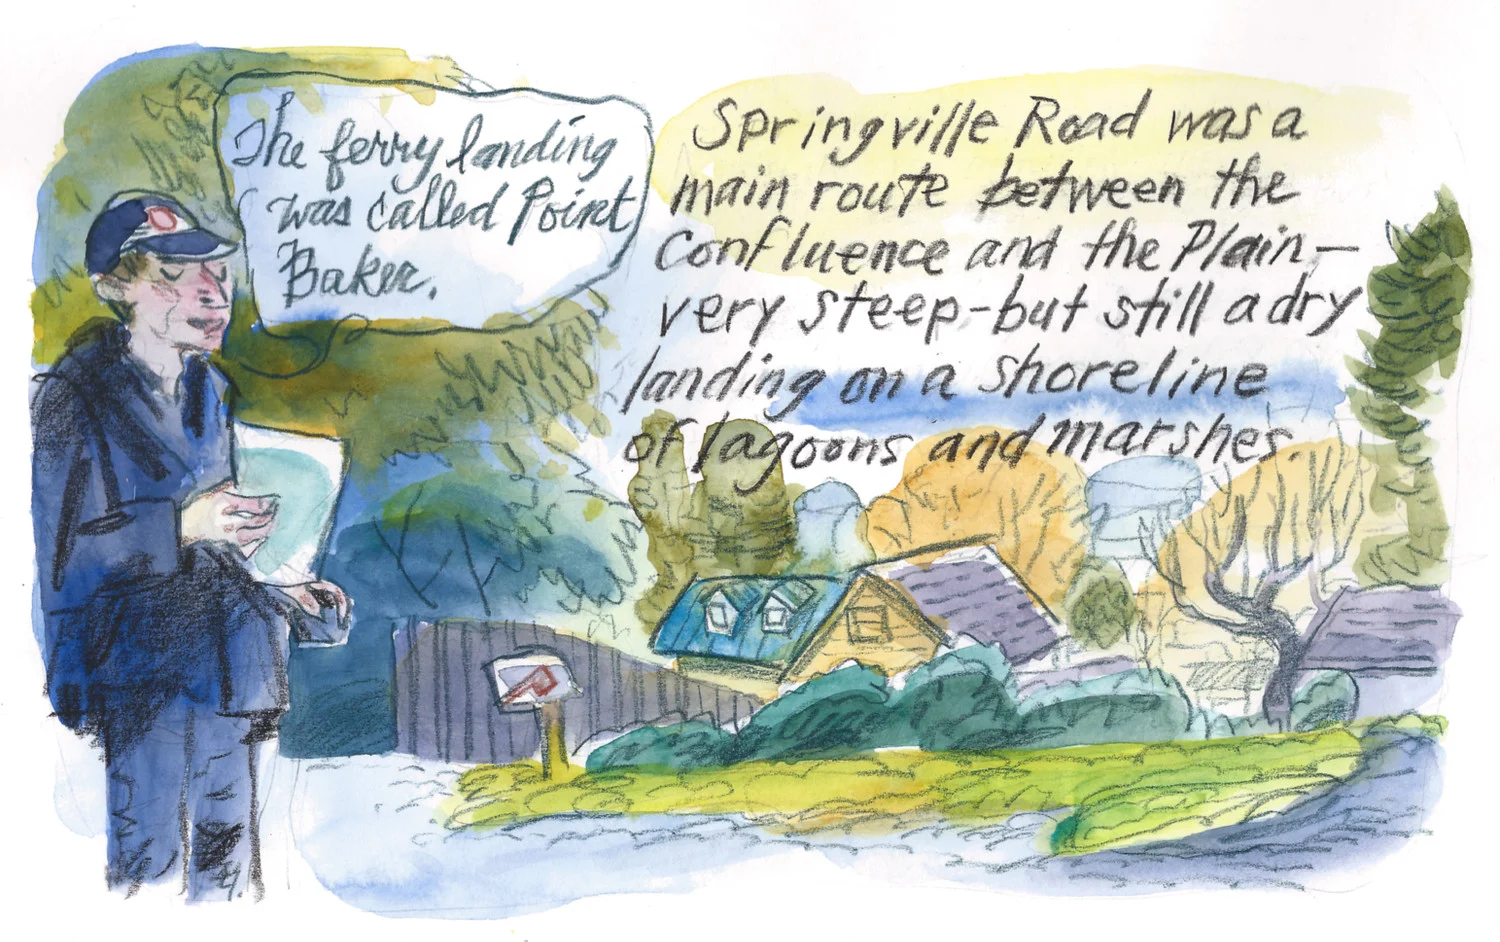 The ferry landing
was called Point
Baker.
Springville Road was a
main route between the
Confluence and the Plain—
very steep-but still a dry
landing on a shoreline
of lagoons and marshes.